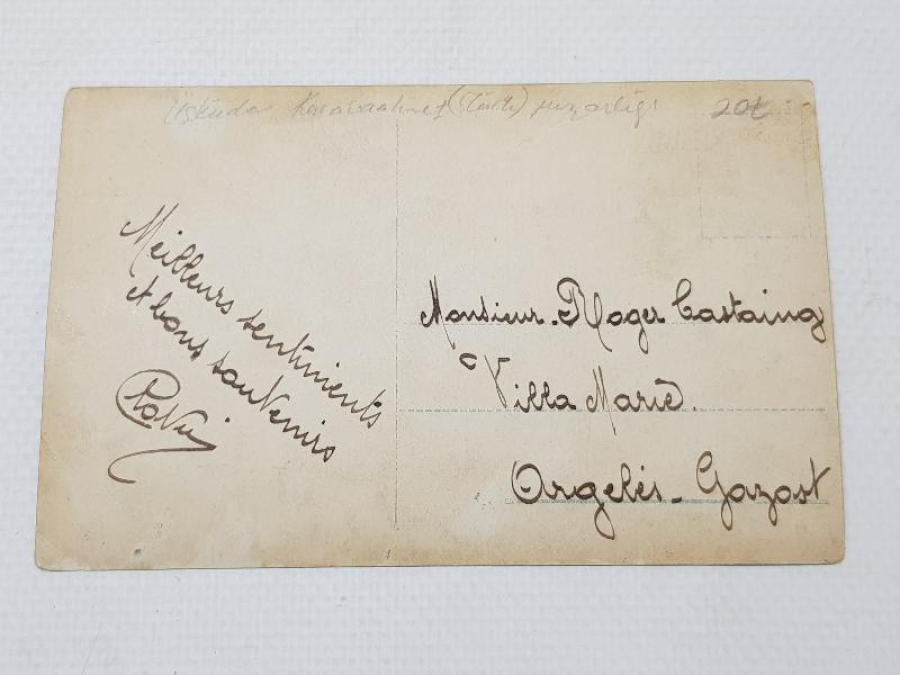 Üsküdar Karacaahmet (Türk) mezarlığı
20t
Meilleurs sentiments
et bons souvenirs
Monsieur. Roger Castaing
Villa Marie.
Argelès-Gazost